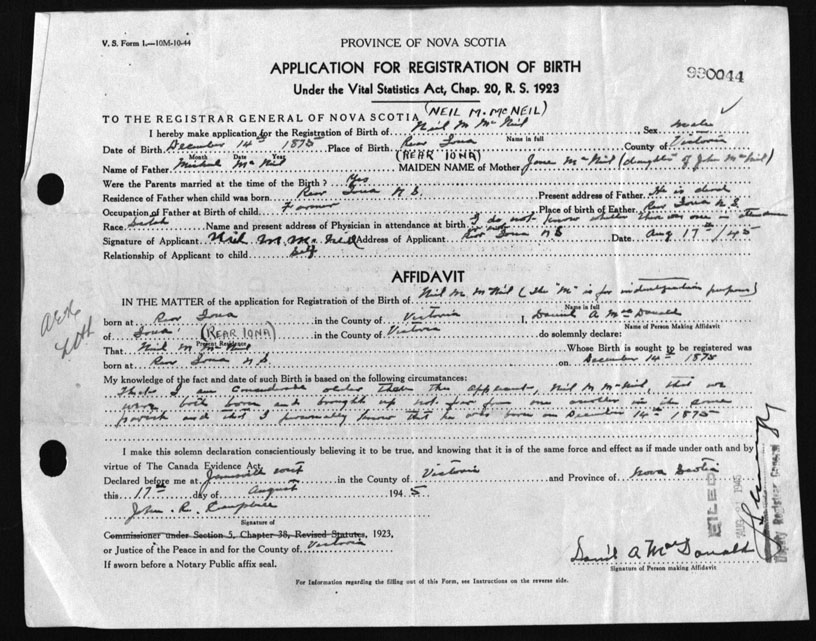 V. S. Form 1.—10M-10-44
PROVINCE OF NOVA SCOTIA
APPLICATION FOR REGISTRATION OF BIRTH
Under the Vital Statistics Act, Chap. 20, R. S. 1923
990044
(NEIL M. MCNEIL)
TO THE REGISTRAR GENERAL OF NOVA SCOTIA
I hereby make application for the Registration of Birth of Neil M McNeil Sex male
Name in full
Date of Birth December 14th 1875 Place of Birth Rear Iona County of Victoria
Month Date Year
(REAR IONA)
Name of Father Michael McNeil MAIDEN NAME of Mother Jane McNeil (daughter of John McNeil)
Were the Parents married at the time of the Birth? Yes
Residence of Father when child was born Rear Iona N.S. Present address of Father He is dead
Occupation of Father at Birth of child Farmer Place of birth of Father Rear Iona N.S
Race Scotch Name and present address of Physician in attendance at birth I do not know whether there was one in attendance or not
Signature of Applicant Neil M. McNeil Address of Applicant Rear Iona N S Date Aug 17th/45
Relationship of Applicant to child Self
AFFIDAVIT
IN THE MATTER of the application for Registration of the Birth of Neil M McNeil (The "M" is for individualization purposes)
Name in full
born at Rear Iona in the County of Victoria I, Daniel A MacDonald
Name of Person Making Affidavit
of Iona (REAR IONA) in the County of Victoria do solemnly declare:
Present Residence
That Neil M McNeil Whose Birth is sought to be registered was
born at Rear Iona N S on December 14th 1875
My knowledge of the fact and date of such Birth is based on the following circumstances:
That I am considerable older than the applicant, Neil M McNeil, that we
were both born and brought up not far from one another in the same
parish and that I personally know that he was born on December 14th 1875
I make this solemn declaration conscientiously believing it to be true, and knowing that it is of the same force and effect as if made under oath and by
virtue of The Canada Evidence Act.
Declared before me at Jamesville West in the County of Victoria and Province of Nova Scotia
this 17th day of August 1945
John R. Campbell
Signature of
Commissioner under Section 5, Chapter 38, Revised Statutes, 1923,
or Justice of the Peace in and for the County of Victoria
If sworn before a Notary Public affix seal.
Daniel A MacDonald
Signature of Person making Affidavit
For Information regarding the filling out of this Form, see Instructions on the reverse side.
FILED
1945
Deputy Registrar General